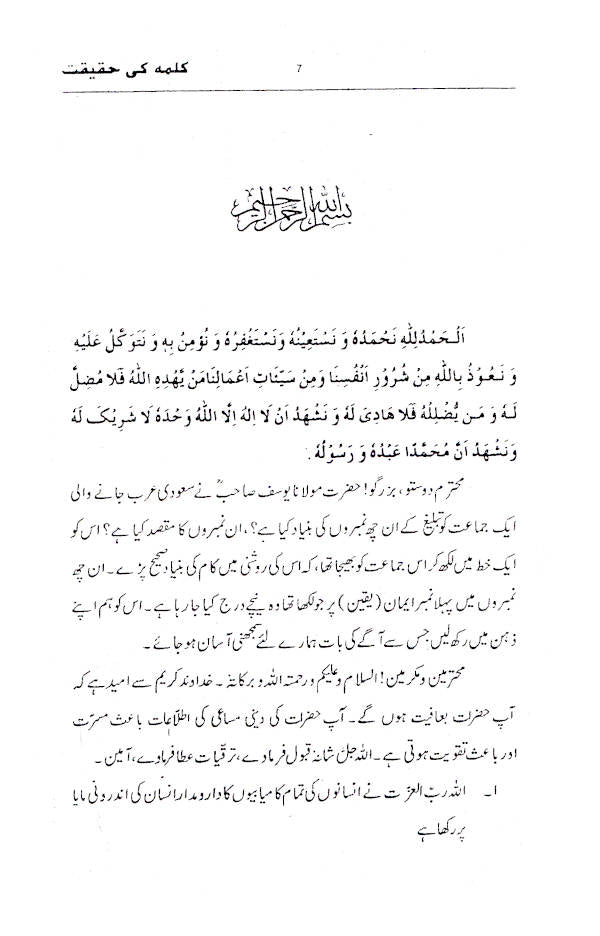 کلمہ کی حقیقت
7
بسم اللہ الرحمن الرحیم
اَلْحَمْدُلِلّٰہِ نَحْمَدُہٗ وَ نَسْتَعِیْنُہٗ وَنَسْتَغْفِرُہٗ وَ نُوْمِنُ بِہٖ وَ نَتَوَکَّلُ عَلَیْہِ
وَ نَعُوْذُ بِاللّٰہِ مِنْ شُرُوْرِ اَنْفُسِنَا وَمِنْ سَیِّئَاتِ اَعْمَالِنَامَنْ یَّھْدِہِ اللّٰہُ فَلَا مُضِلَّ
لَہٗ وَ مَنْ یُّضْلِلْہُ فَلَا ھَادِیَ لَہٗ وَ نَشْھَدُ اَنْ لَا اِلٰہَ اِلَّا اللّٰہُ وَحْدَہٗ لَا شَرِیْکَ لَہٗ
وَنَشْھَدُ اَنَّ مُحَمَّدًا عَبْدُہٗ وَ رَسُوْلُہٗ .
محترم دوستو، بزرگو! حضرت مولانا یوسف صاحبؒ نے سعودی عرب جانے والی
ایک جماعت کو تبلیغ کے ان چھ نمبروں کی بنیاد کیا ہے؟، ان نمبروں کا مقصد کیا ہے؟ اس کو
ایک خط میں لکھ کر اس جماعت کو بھیجا تھا، کہ اس کی روشنی میں کام کی بنیاد صحیح پڑے۔ ان چھ
نمبروں میں پہلا نمبر ایمان (یقین) پر جو لکھا تھا وہ نیچے درج کیا جا رہا ہے۔ اس کو ہم اپنے
ذہن میں رکھ لیں جس سے آگے کی بات ہمارے لئے سمجھنی آسان ہو جائے۔
محترمین و مکرمین! السلام و علیکم و رحمتہ اللہ و برکاتہٗ۔ خداوند کریم سے امید ہے کہ
آپ حضرات بعافیت ہوں گے۔ آپ حضرات کی دینی مساعی کی اطلاعات باعث مسرّت
اور باعث تقویت ہوتی ہے۔ اللہ جلّ شانہٗ قبول فرمادے، ترقیات عطا فرمادے، آمین۔
۱۔ اللہ ربّ العزّت نے انسانوں کی تمام کامیابیوں کا دارومدار انسان کی اندرونی مایا
پر رکھا ہے